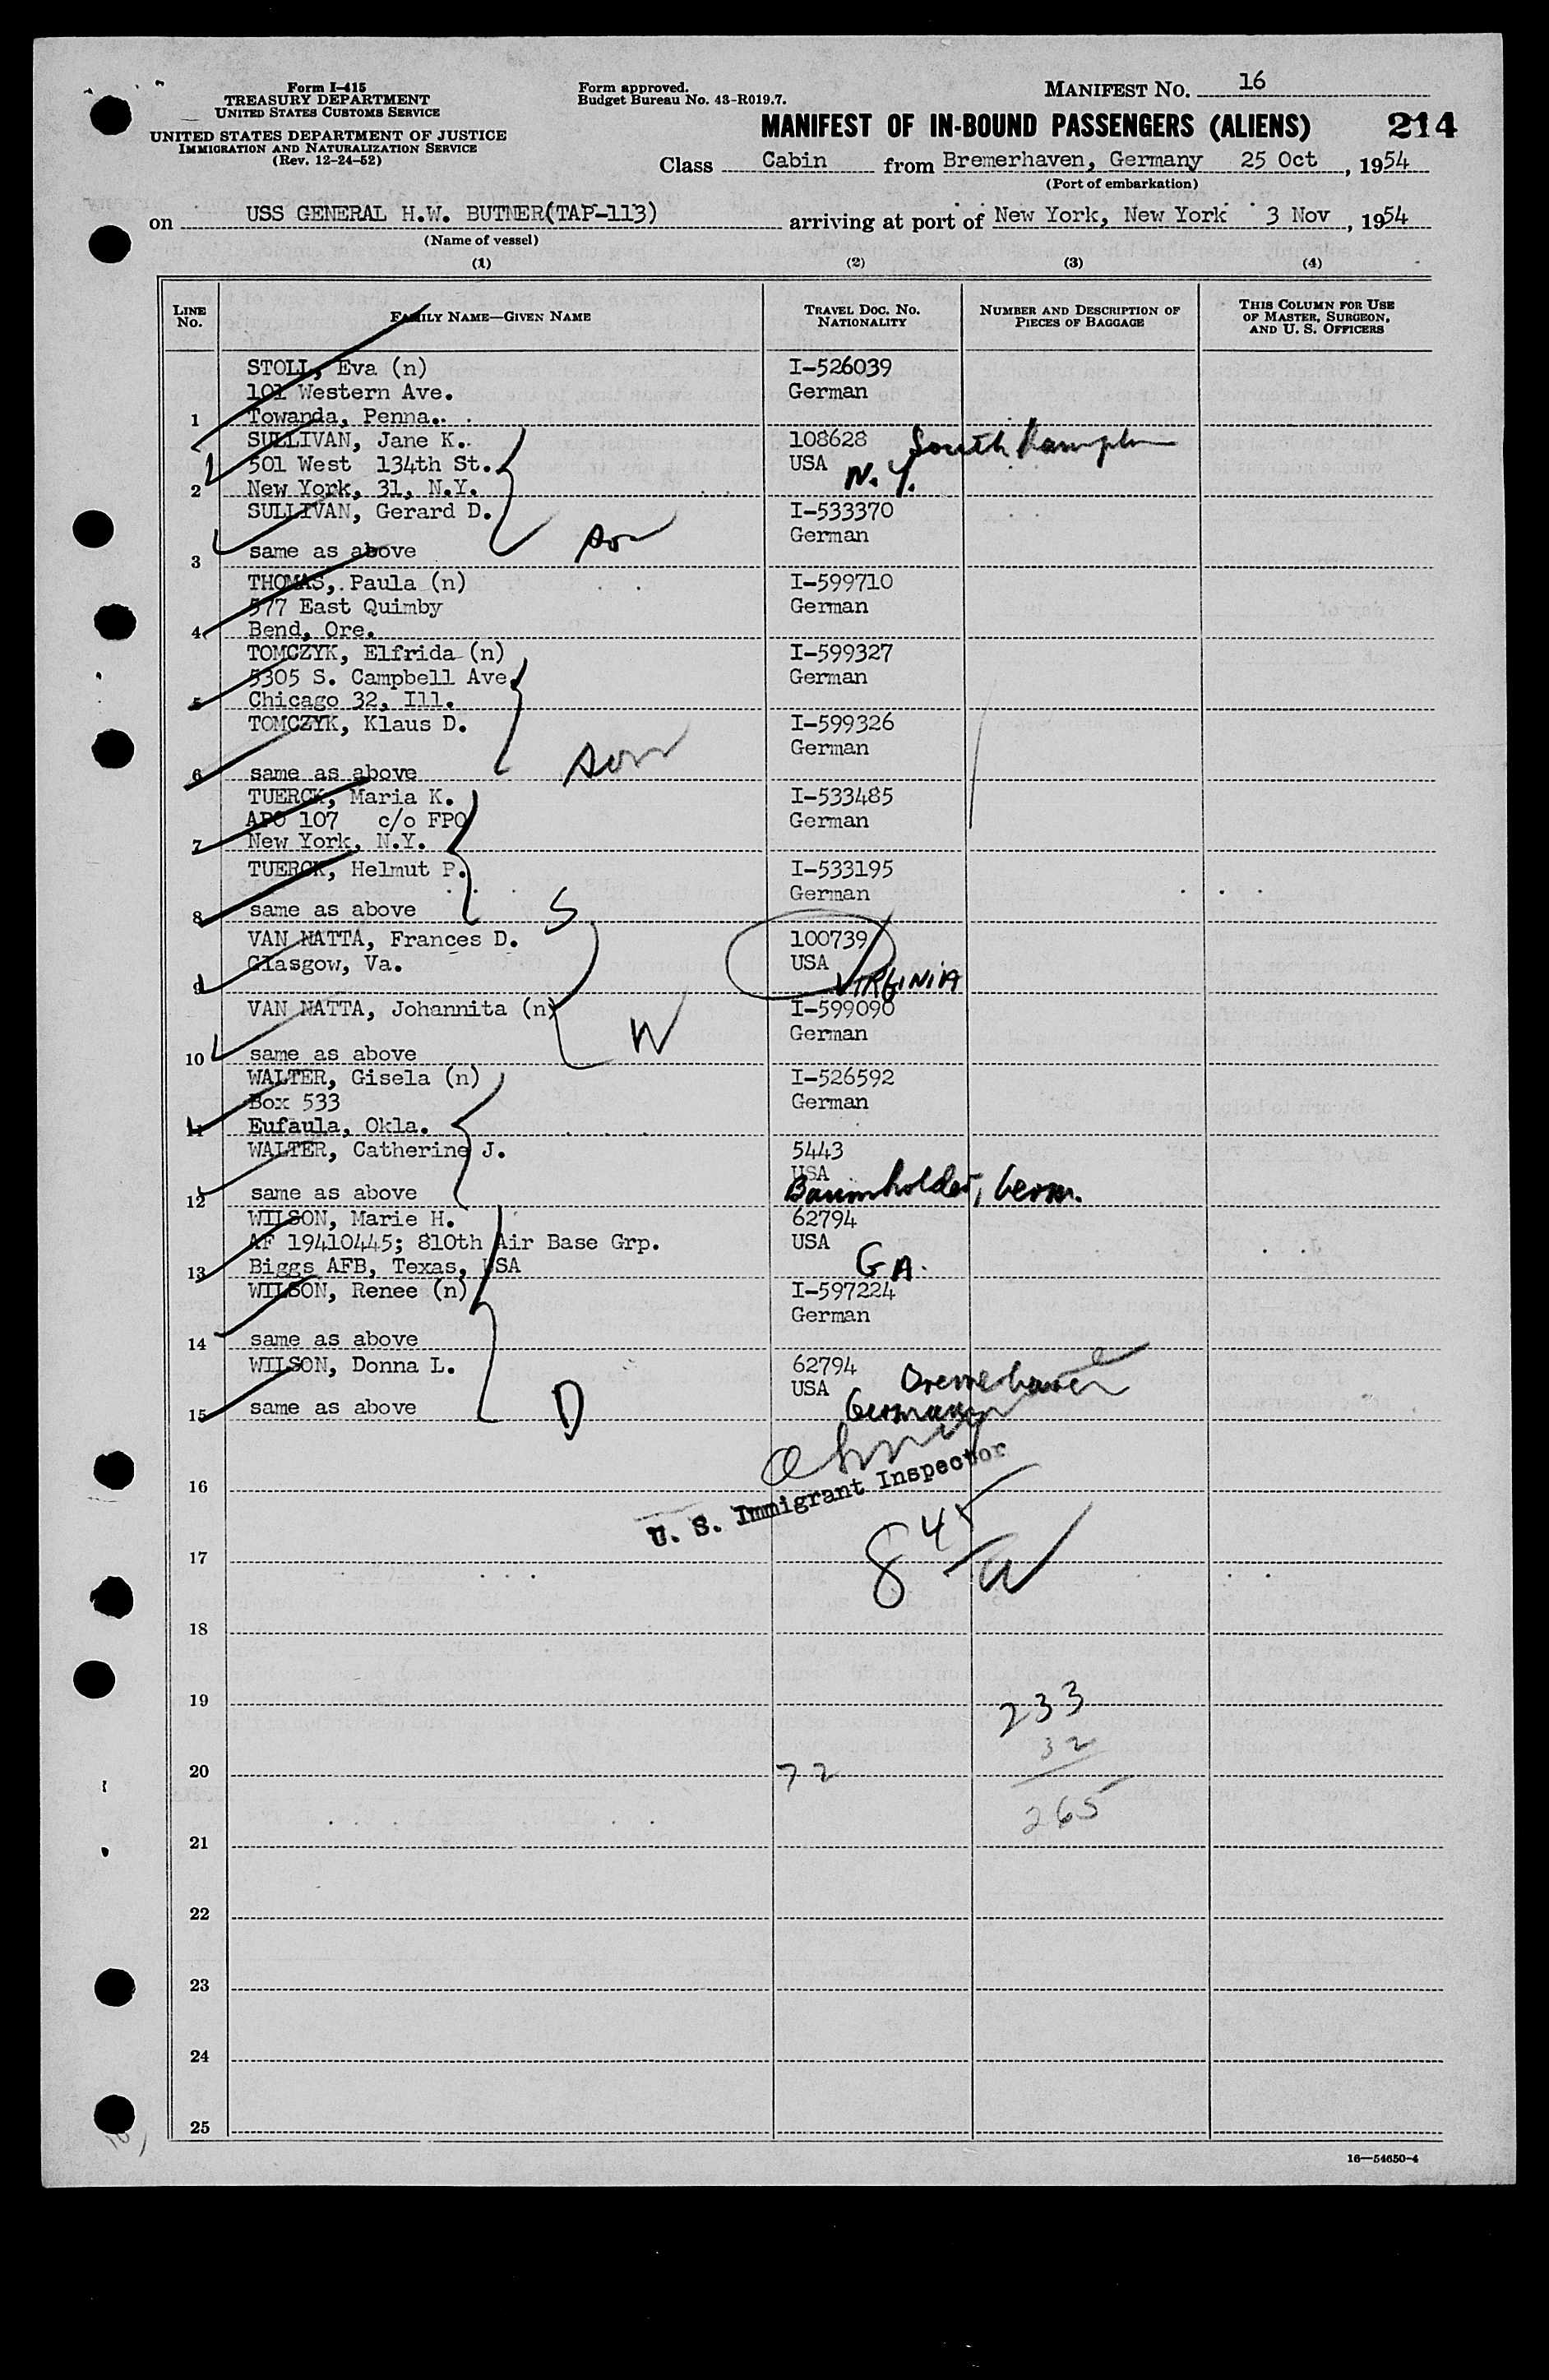 Form I-415
TREASURY DEPARTMENT
UNITED STATES CUSTOMS SERVICE
UNITED STATES DEPARTMENT OF JUSTICE
IMMIGRATION AND NATURALIZATION SERVICE
(Rev. 12-24-52)
Form approved.
Budget Bureau No. 43-R019.7.
MANIFEST NO. 16
MANIFEST OF IN-BOUND PASSENGERS (ALIENS) 214
Class Cabin from Bremerhaven, Germany 25 Oct, 1954
(Port of embarkation)
on USS GENERAL H.W. BUTNER(TAP-113) arriving at port of New York, New York 3 Nov, 1954
(Name of vessel)
(1) (2) (3) (4)
LINE NO. FAMILY NAME—GIVEN NAME TRAVEL DOC. NO. NATIONALITY NUMBER AND DESCRIPTION OF PIECES OF BAGGAGE THIS COLUMN FOR USE OF MASTER, SURGEON, AND U. S. OFFICERS
STOLL, Eva (n) I-526039
101 Western Ave. German
1 Towanda, Penna..
SULLIVAN, Jane K. 108628 South Hampton
501 West 134th St. USA
2 New York, 31, N.Y. N.Y.
SULLIVAN, Gerard D. I-533370
German
3 same as above son
THOMAS, Paula (n) I-599710
577 East Quimby German
4 Bend, Ore.
TOMCZYK, Elfrida (n) I-599327
5305 S. Campbell Ave. German
5 Chicago 32, Ill.
TOMCZYK, Klaus D. I-599326
German
6 same as above son
TUERCK, Maria K. I-533485
APO 107 c/o FPO German
7 New York, N.Y.
TUERCK, Helmut P. I-533195
German
8 same as above S
VAN NATTA, Frances D. 100739
Glasgow, Va. USA
9 VIRGINIA
VAN NATTA, Johannita (n) I-599090
German
10 same as above W
WALTER, Gisela (n) I-526592
Box 533 German
11 Eufaula, Okla.
WALTER, Catherine J. 5443
USA
12 same as above Baumholder, Germ.
WILSON, Marie H. 62794
AF 19410445; 810th Air Base Grp. USA
13 Biggs AFB, Texas, USA GA.
WILSON, Renee (n) I-597224
German
14 same as above
WILSON, Donna L. 62794
USA Bremerhaven
15 same as above D Germany
16 U. S. Immigrant Inspector
17 8 45
18
19 233
32
20 72
265
21
22
23
24
25
16—54650-4